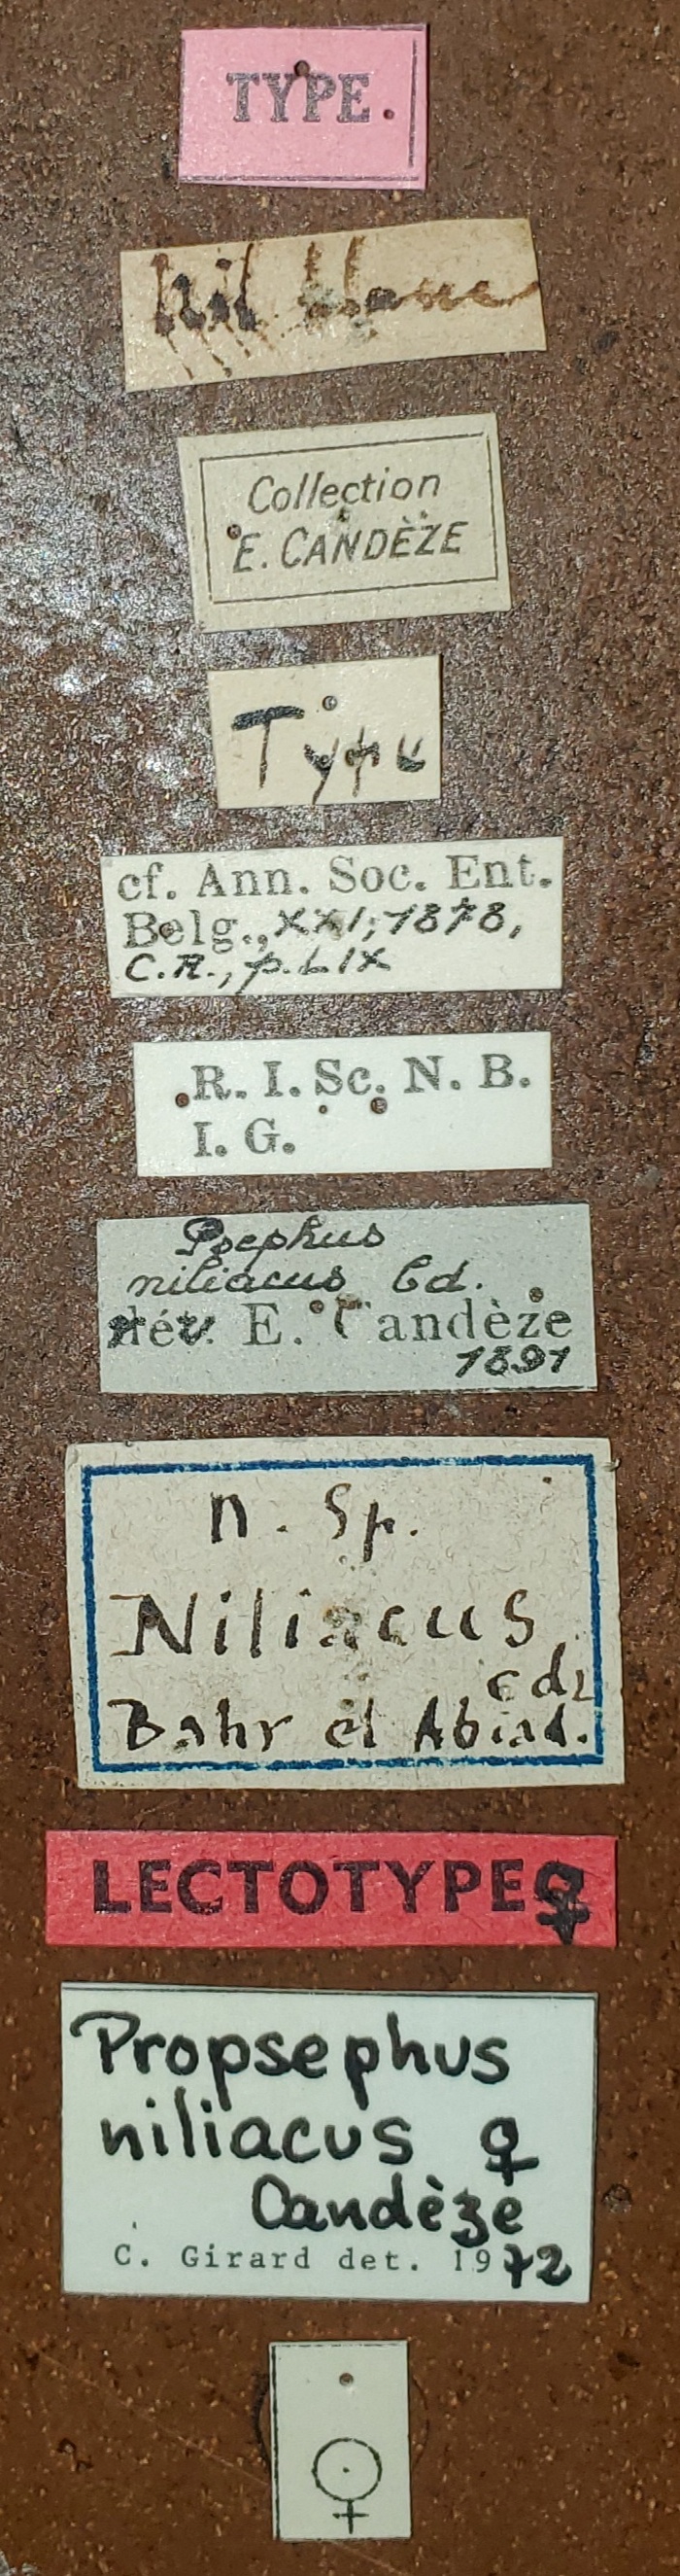 TYPE.
Nil blanc
Collection
E. CANDÈZE
Type
cf. Ann. Soc. Ent.
Belg., XXI, 1878,
C.R., p. LIX
R. I. Sc. N. B.
I. G.
Psephus
niliacus Cd.
rév. E. Candèze
1891
n. sp.
Niliacus
cdz
Bahr el Abiad.
LECTOTYPE ♀
Propsephus
niliacus ♀
Candèze
C. Girard det. 1972
♀